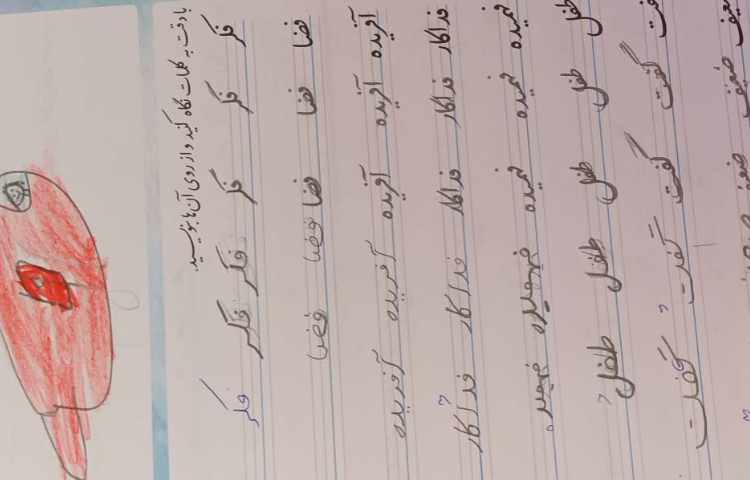 با دقت به کلمات نگاه کنید و از روی آن ها بنویسید.
فکر فکر فکر فکر فکر فکر
فضا فضا فضا فضا فضا
آفریده آفریده آفریده آفریده آفریده
فداکار فداکار فداکار فداکار فداکار
فهمیده فهمیده فهمیده فهمیده فهمیده
طفل طفل طفل طفل طفل
گفت گفت گفت گفت
ضعیف